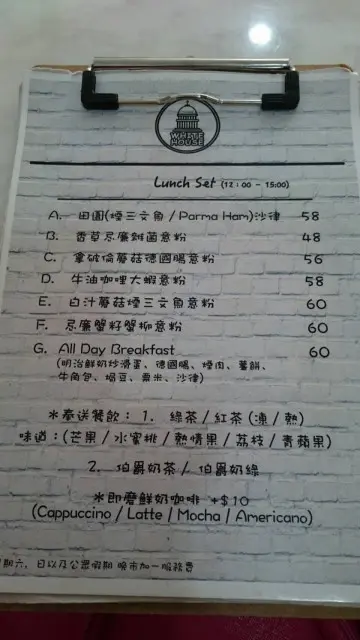 WHITE
HOUSE
Lunch Set (12:00 - 15:00)
A. 田園(煙三文魚 / Parma Ham)沙律 58
B. 香草忌廉雜菌意粉 48
C. 拿破倫蘑菇德國腸意粉 56
D. 牛油咖哩大蝦意粉 58
E. 白汁蘑菇煙三文魚意粉 60
F. 忌廉蟹籽蟹柳意粉 60
G. All Day Breakfast 60
(明治鮮奶炒滑蛋、德國腸、煙肉、薯餅、
牛角包、焗豆、粟米、沙律)
*奉送餐飲: 1. 綠茶 / 紅茶 (凍 / 熱)
味道:(芒果 / 水蜜桃 / 熱情果 / 荔枝 / 青蘋果)
2. 伯爵奶茶 / 伯爵奶綠
*即磨鮮奶咖啡 +$10
(Cappuccino / Latte / Mocha / Americano)
期六、日以及公眾假期 晚市加一服務費